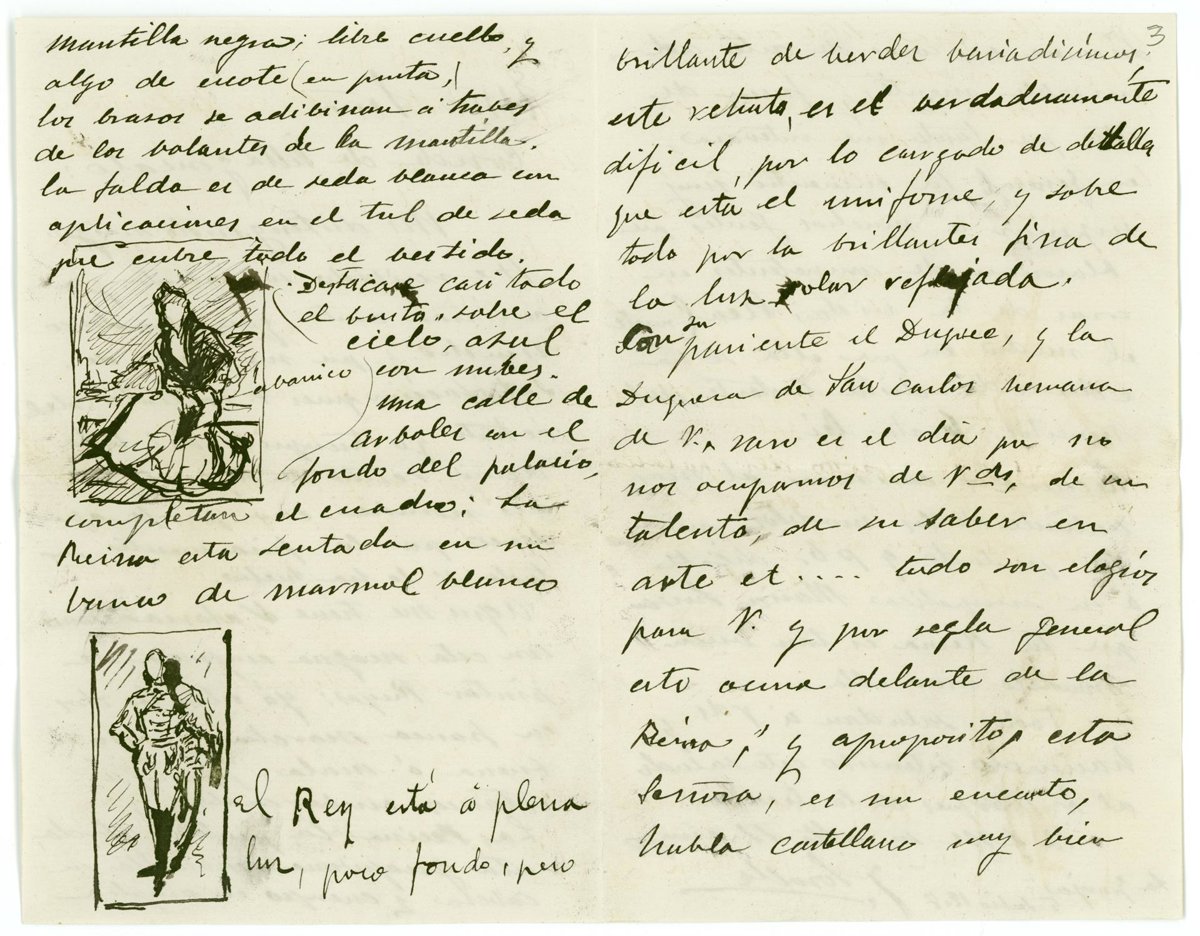 mantilla negra; libre cuello, y
algo de escote (en punta,)
los brasos se adibinan á traves
de los volantes de la mantilla.
la falda es de seda blanca con
aplicaciones en el tul de seda
que cubre todo el vestido.
Destacase casi todo
el busto, sobre el
cielo, azul
abanico
con nubes.
una calle de
arboles con el
fondo del palacio,
completan el cuadro; La
Reina esta sentada en un
banco de marmol blanco
El Rey está á plena
luz, poco fondo, pero
3
brillante de verdes variadisimos,
este retrato, es el verdaderamente
dificil, por lo cargado de detalles
que está el uniforme, y sobre
todo por la brillantes fisica de
la luz solar reflejada.
Con su pariente el Duque, y la
Duquesa de San Carlos hermana
de V. raro es el dia que no
nos ocupamos de Vds, de su
talento, de su saber en
arte et .... todo son elogios
para V. y por regla general
esto ocurre delante de la
Reina; y aproposito, esta
Señora, es un encanto,
habla castellano muy bien